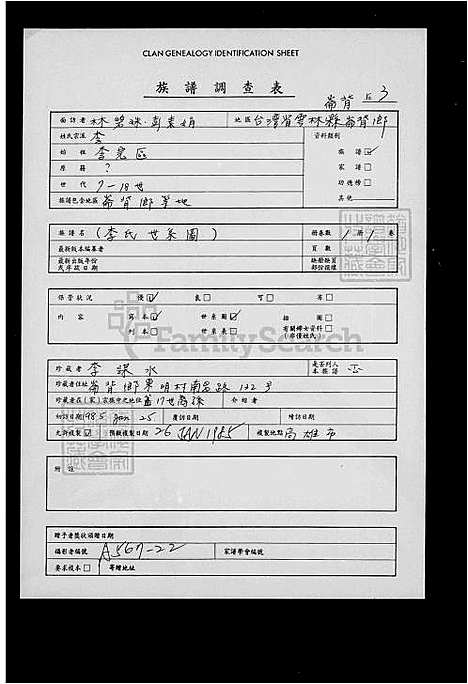 CLAN GENEALOGY IDENTIFICATION SHEET
族譜調查表
崙背 3
面訪者 林 地區 台灣省雲林縣崙背鄉
姓氏宗派 李 資料類別
始祖 李 族譜 ☑
原籍 ? 家譜 □
世代 7-18世 功德榜 □
族譜包含地區 崙背鄉等地 其他
族譜名 (李氏世系圖) 冊卷數 1 冊 1 卷
最新版本編纂者 頁數
最新出版年份或序跋日期 缺冊缺頁部份採錄
保管狀況 優 ☑ 良 □ 可 □ 劣 □
內容 寫本 ☑ 世系圖 ☑ 插圖 □
刊本 □ 世系表 □ 有關婦女資料 □ (非僅姓氏)
FamilySearch
珍藏者 李 水 是否列入本族譜 否
珍藏者住址 崙背鄉東明村南 路 132號
珍藏者在(家)宗族中之地位 17世裔孫 介紹者
初訪日期 985 Jan 25 複訪日期 增訪日期
允許複製 ☑ 預觀複製日期 26 JAN 1985 複製地點 高雄市
附註
贈予者獎狀頒贈日期
攝影者編號 A567-22 家譜學會編號
要求複本 □ 寄贈地址